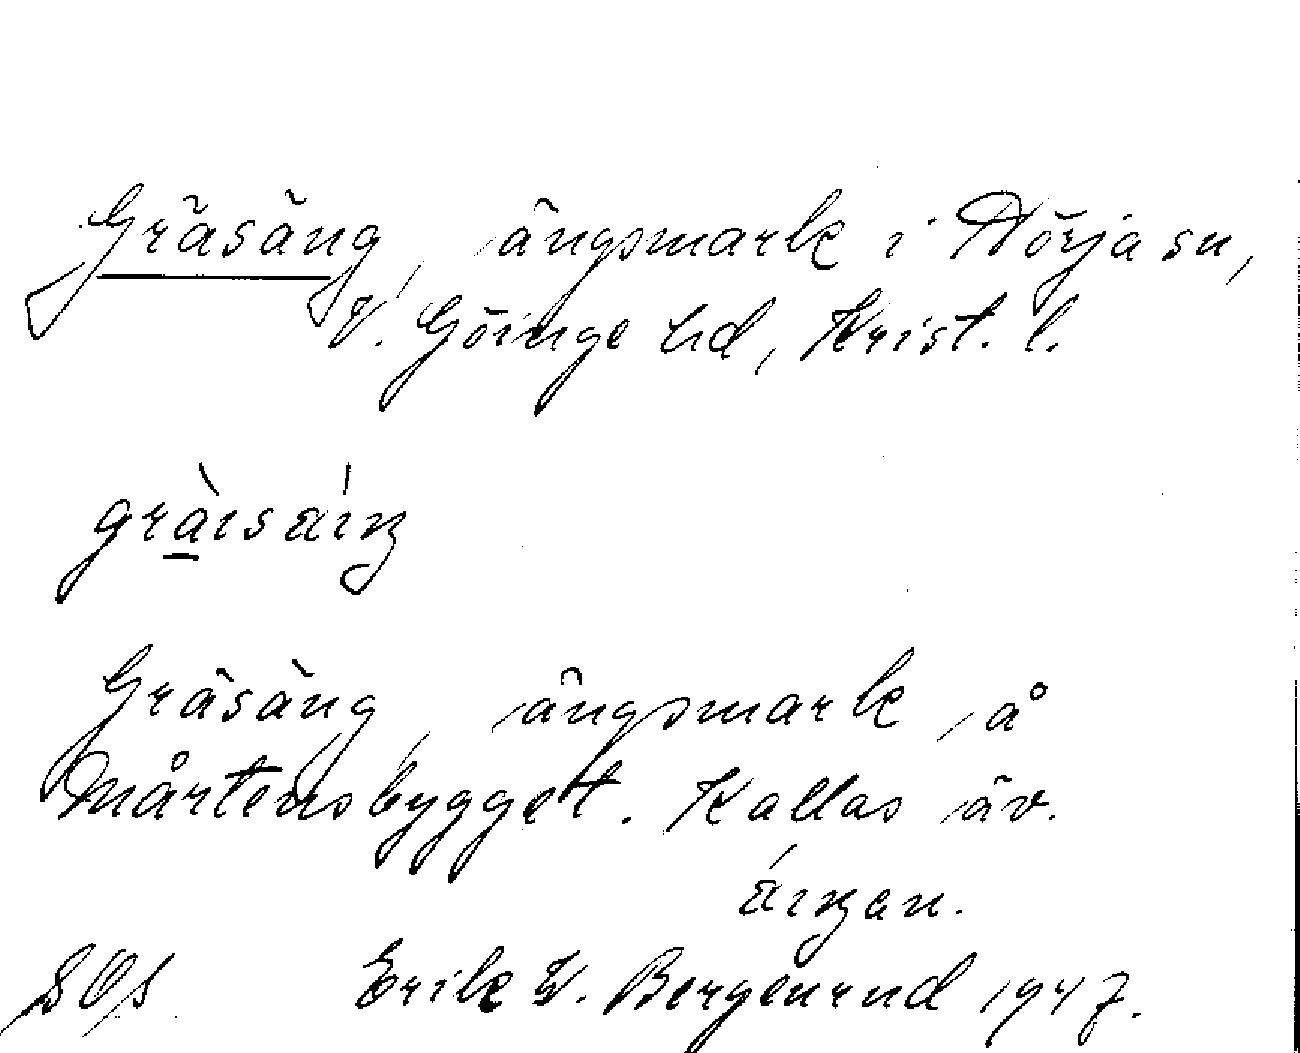 Gräsäng, ängsmark i Nörja sn,
V. Göinge hd, Krist. l.
Gräsäng, ängsmark å
Mårtensbygget. Kallas äv.
Erik W. Bergenrud 1947.